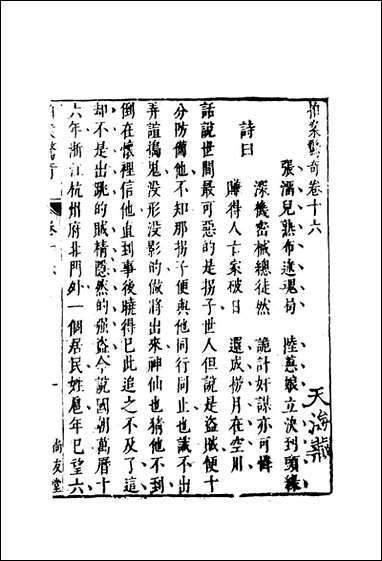 拍案驚奇卷十六
張溜兒熟布迷魂局　陸蕙娘立決到頭緣
詩曰
深機密械總徒然　詭計奸謀亦可憐
賺得人亡家破日　還成撈月在空川
話說世間最可惡的是拐子世人但說是盜賊便十
分防備他不知那拐子便與他同行同止也識不出
弄諠搗鬼沒形沒影的做將出來神仙也猜他不到
倒在懷裡信他直到事後曉得已此追之不及了這
却不是出跳的賊精隱然的強盜今說國朝萬曆十
六年浙江杭州府北門外一個居民姓扈年已望六
尚友堂
天海藏